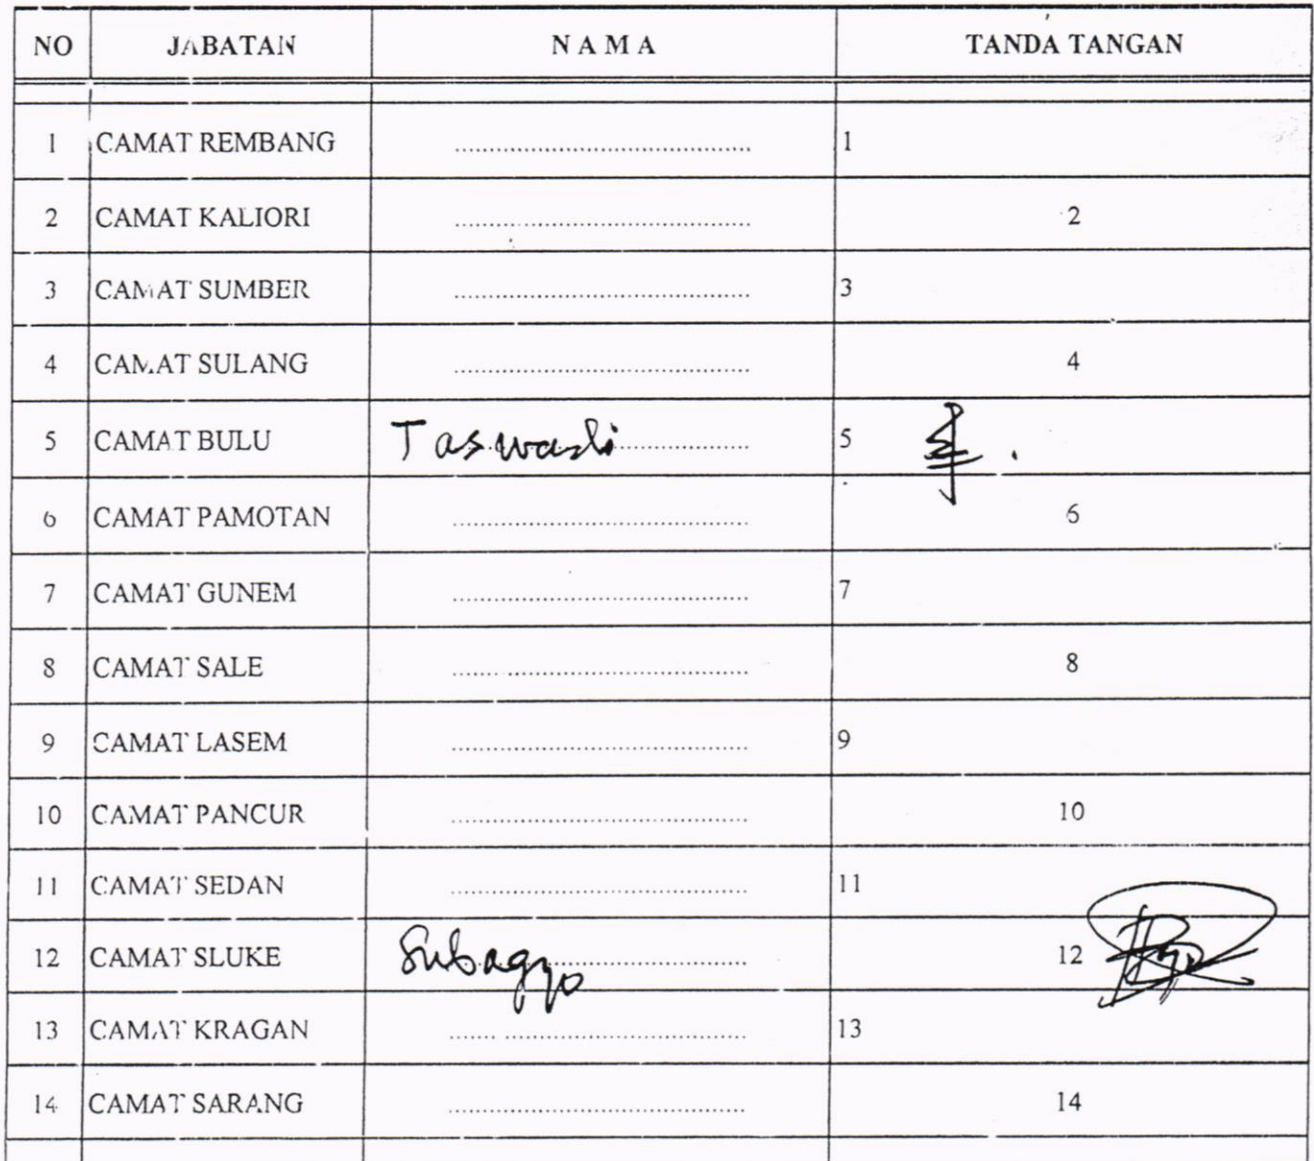 NO JABATAN N A M A TANDA TANGAN
1 CAMAT REMBANG ................................................ 1
2 CAMAT KALIORI ................................................ 2
3 CAMAT SUMBER ................................................ 3
4 CAMAT SULANG ................................................ 4
5 CAMAT BULU Taswadi 5
6 CAMAT PAMOTAN ................................................ 6
7 CAMAT GUNEM ................................................ 7
8 CAMAT SALE ................................................ 8
9 CAMAT LASEM ................................................ 9
10 CAMAT PANCUR ................................................ 10
11 CAMAT SEDAN ................................................ 11
12 CAMAT SLUKE Subagyo 12
13 CAMAT KRAGAN ................................................ 13
14 CAMAT SARANG ................................................ 14